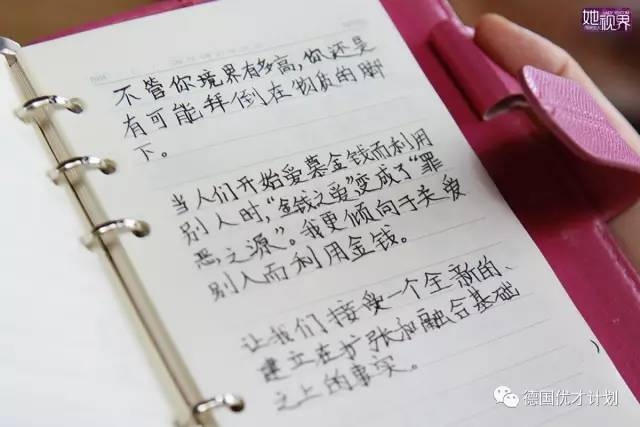 她视界
不管你境界有多高，你还是
有可能拜倒在物质的脚
下。
当人们开始爱慕金钱而利用
别人时，“金钱之爱”变成了“罪
恶之源”。我更倾向于关爱
别人而利用金钱。
让我们接受一个全新的、
建立在扩张和融合基础
之上的事实。
德国优才计划